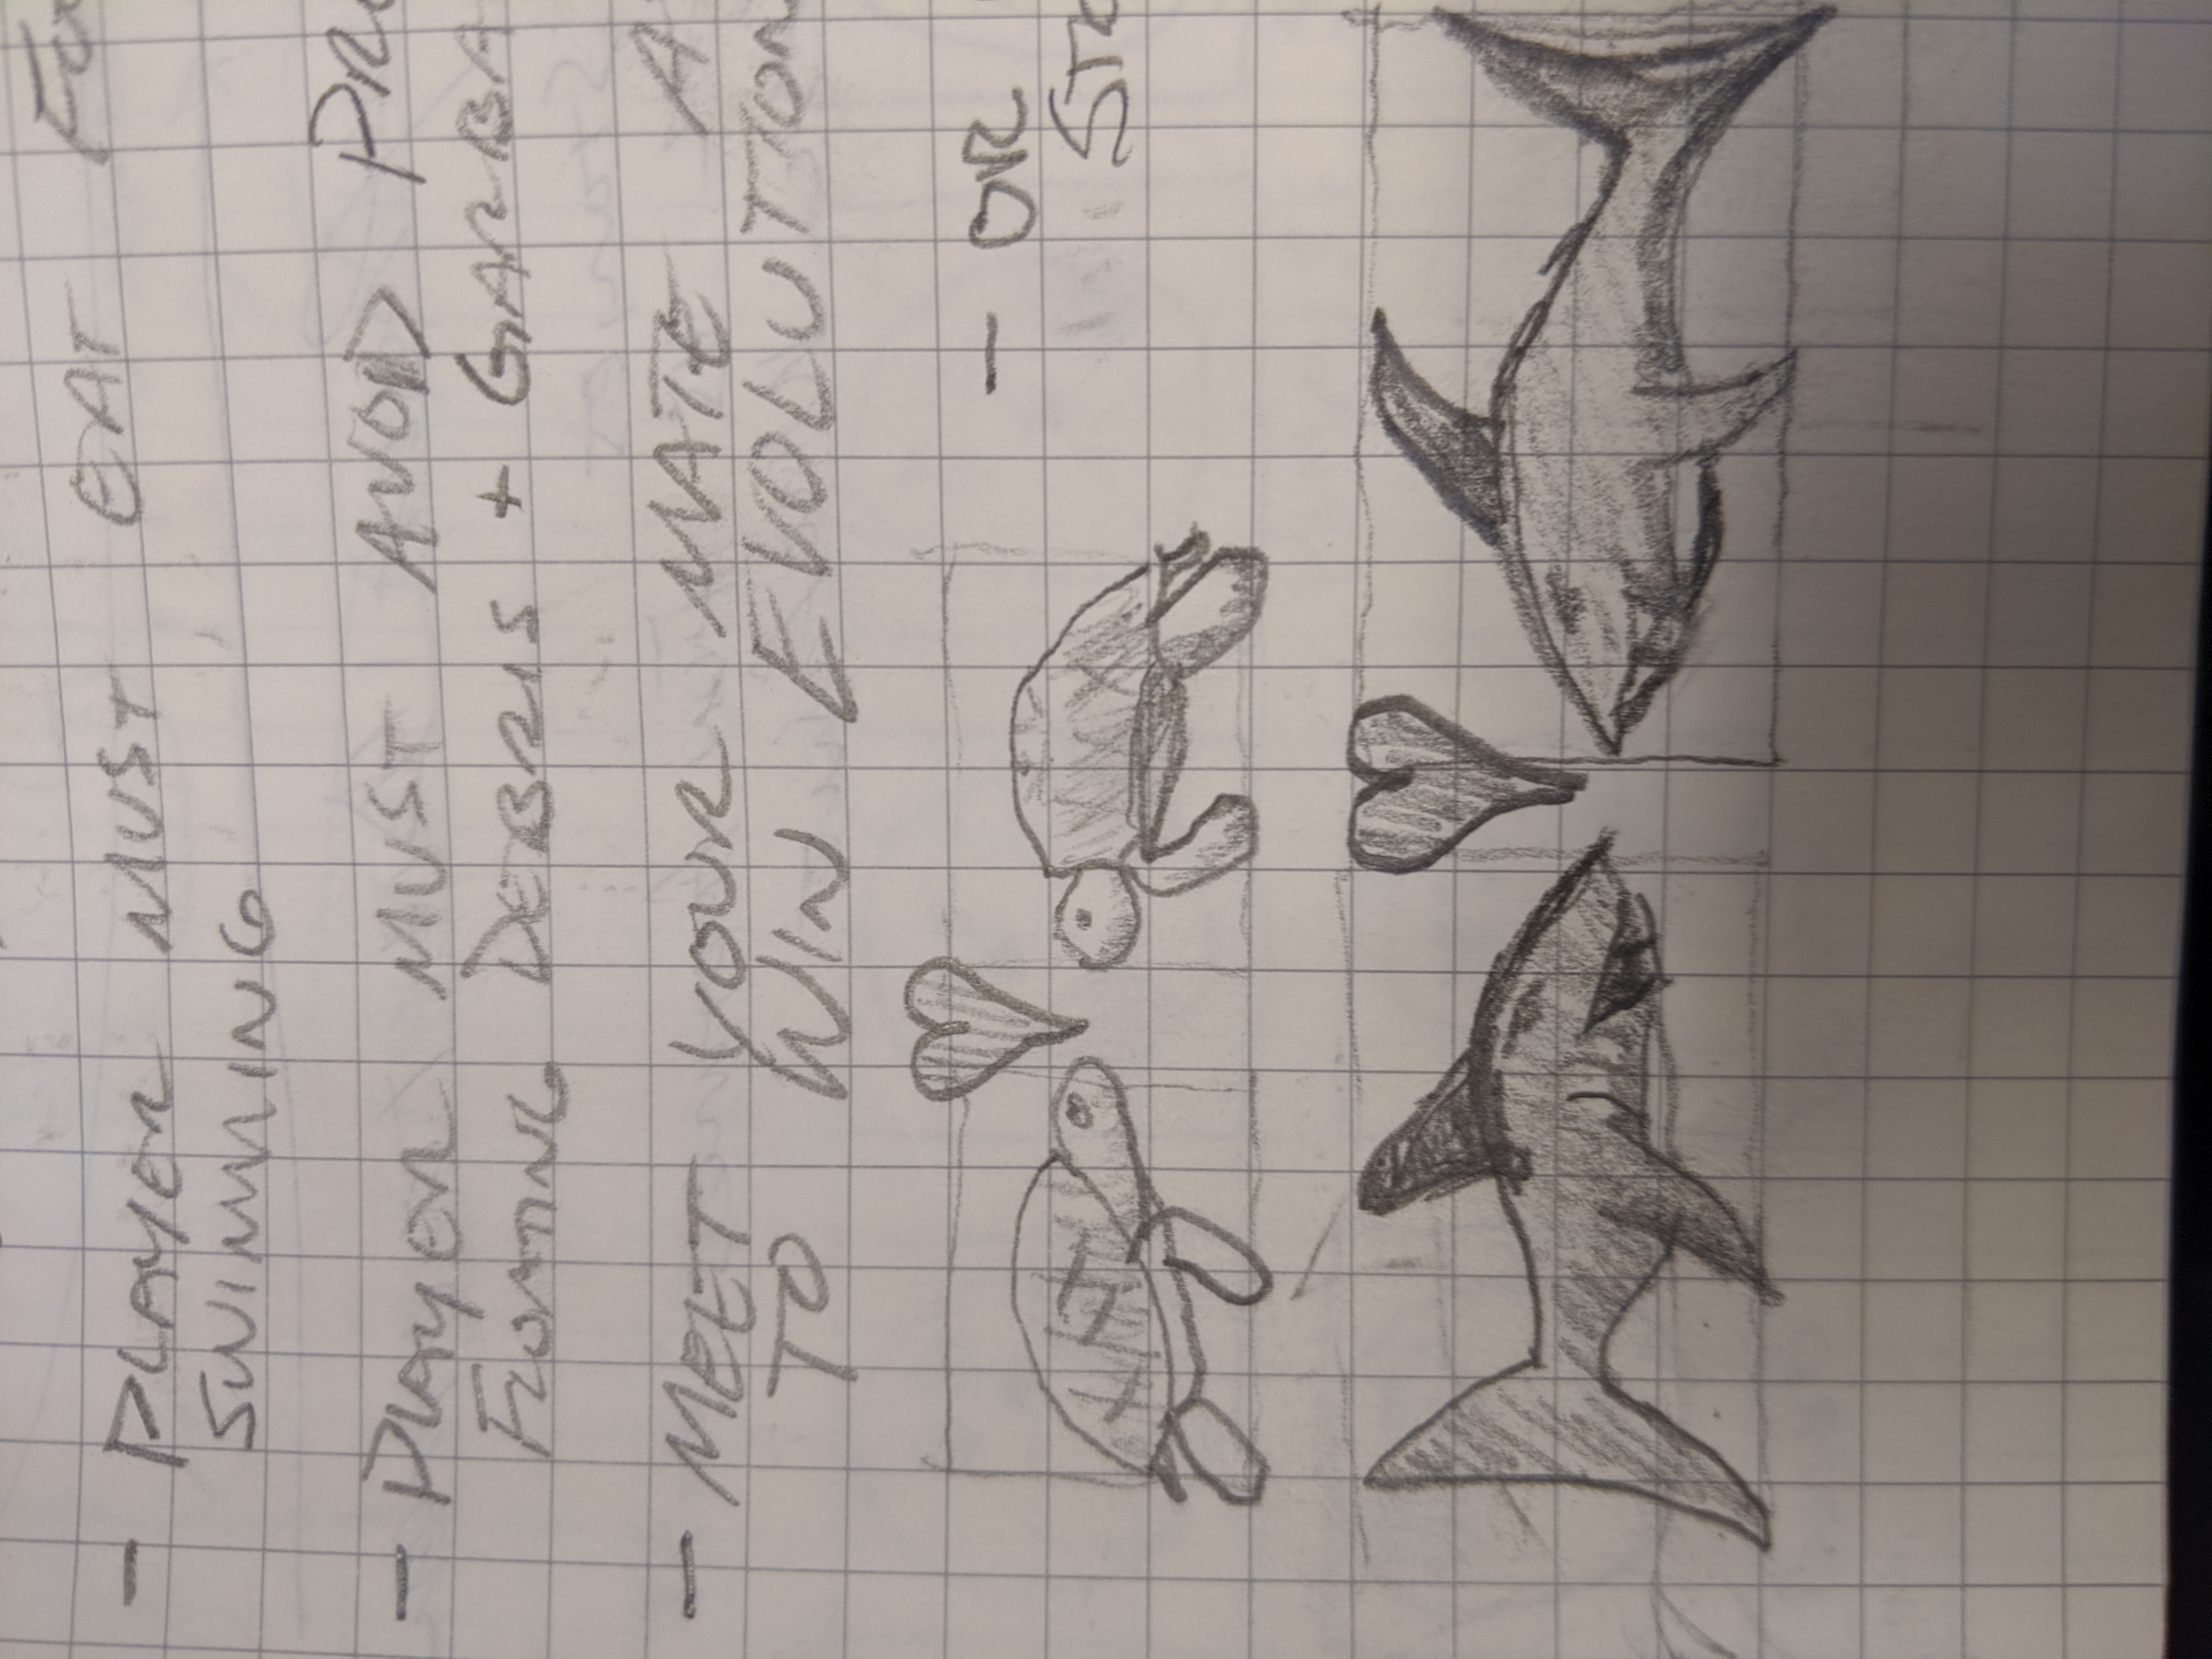 - PLAYER MUST EAT FO
SWIMMING
- PLAYER MUST AVOID PRE
FLOATING DEBRIS + GARBA
- MEET YOUR MATE A
TO WIN EVOLUTION
- OR
STO